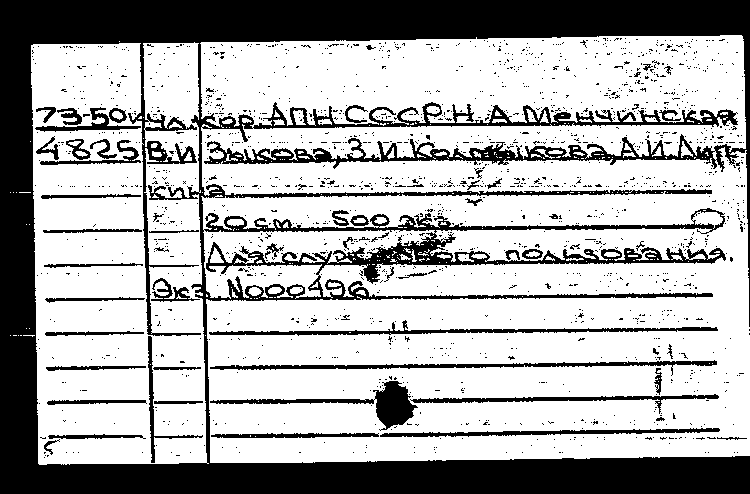 73-50к чл.кор. АПН СССР Н.А. Менчинская
4825 В.И. Зыкова, З.И. Калмыкова, А.И. Лип-
кина
20 см. 500 экз.
Для служебного пользования.
Экз. N000496